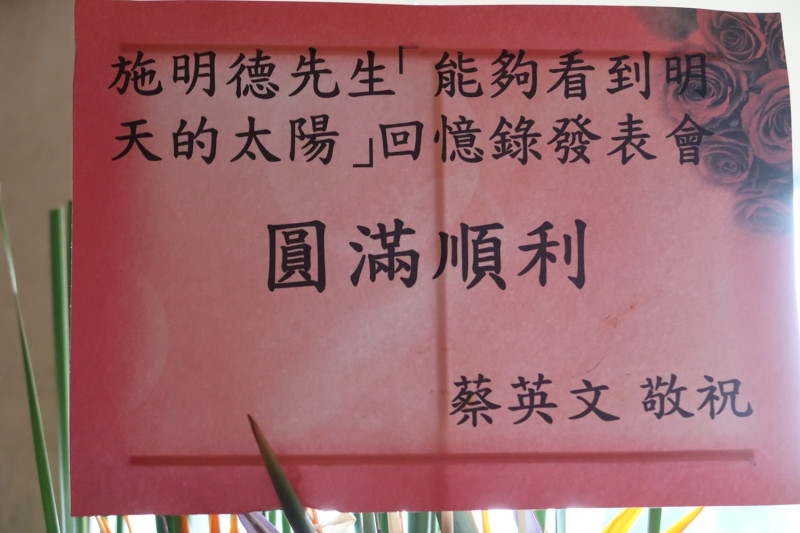 施明德先生「能夠看到明
天的太陽」回憶錄發表會
圓滿順利
蔡英文 敬祝